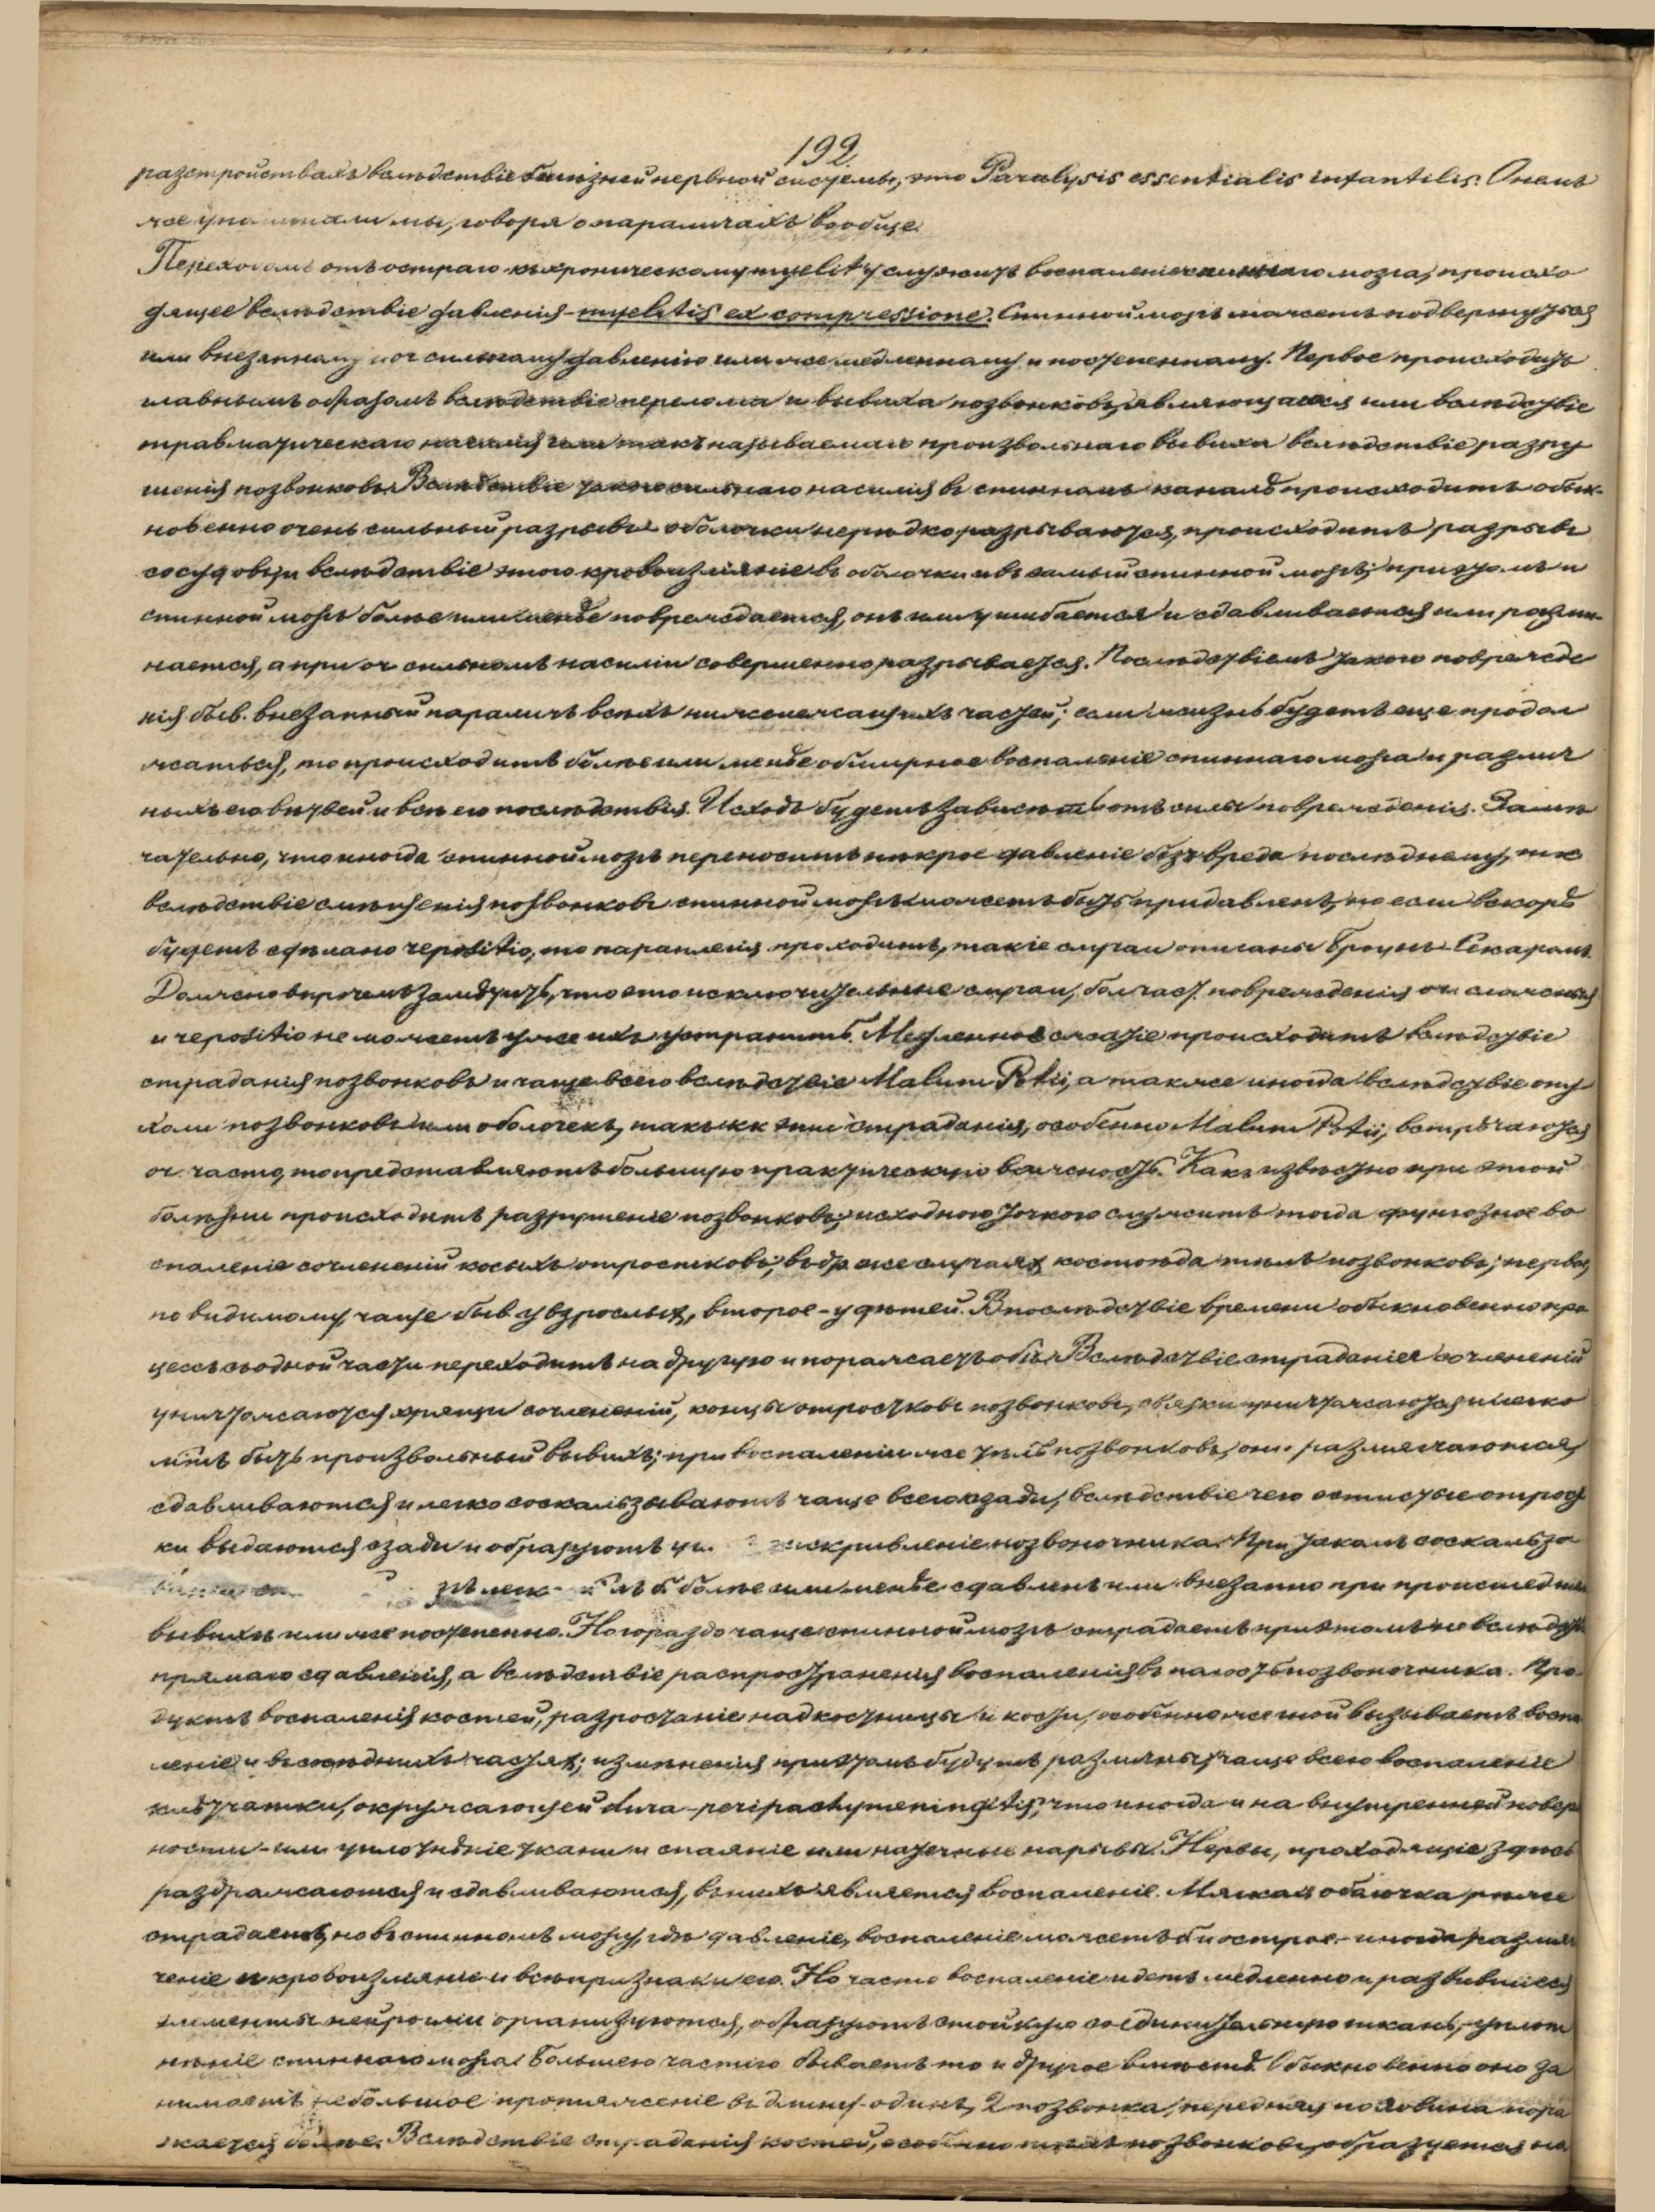 192.
разстройствахъ вслѣдствіе болѣзней нервной системы, это Paralysis essentialis infantilis. О немъ
же упоминали мы, говоря о параличахъ вообще.
Переходомъ отъ остраго къ хроническому myelit'у служитъ воспаленіе спиннаго мозга, происхо
дящее вслѣдствіе давленія - myelitis ex compressione. Спинной мозгъ можетъ подвергнуться
или внезапному и оч сильному давленію или же медленному и постепенному. Первое происходитъ
главнымъ образомъ вслѣдствіе перелома и вывиха позвонковъ, являющагося или вслѣдствіе
травматическаго насилія или такъ называемаго произвольнаго вывиха вслѣдствіе разру
шенія позвонковъ. Вслѣдствіе такого сильнаго насилія въ спинномъ каналѣ происходитъ обык-
новенно очень сильный разрывъ оболочки нерѣдко разрываются, происходитъ разрывъ
сосудовъ, и вслѣдствіе этого кровоизліяніе въ оболочки и въ самый спинной мозгъ; при этомъ и
спинной мозгъ болѣе или менѣе повреждается, онъ или ушибается и сдавливается или размин-
нается, а при оч сильномъ насиліи совершенно разрывается. Послѣдствіемъ такого поврежде
нія быв. внезапный параличъ всѣхъ нижележащихъ частей; если жизнь будетъ еще продол
жаться, то происходитъ болѣе или менѣе обширное воспаленіе спиннаго мозга и различ
ныхъ его вѣтвей и всѣ его послѣдствія. Исходъ будетъ зависѣть отъ силы поврежденія. Замѣ
чательно, что иногда спинной мозгъ переноситъ нѣкрое давленіе безъ вреда послѣднему, т к
вслѣдствіе смѣщенія позвонковъ спинной мозгъ можетъ быть придавленъ, но если вскорѣ
будетъ сдѣлано repositio, то параплегія проходитъ, такіе случаи описаны Броунъ-Секаромъ.
Должно впрочемъ замѣтить, что это исключительные случаи, бол част. поврежденія оч сложныя
и repositio не можетъ уже ихъ устранить. Медленное сжатіе происходитъ вслѣдствіе
страданія позвонковъ и чаще всего вслѣдствіе Malum Potii, а также иногда вслѣдствіе опу
холи позвонковъ или оболочекъ, такъ кк эти страданія, особенно Malum Potii, встрѣчаются
оч. часто, то представляютъ большую практическую важность. Какъ извѣстно при этой
болѣзни происходитъ разрушеніе позвонковъ; исходною точкою служитъ тогда фунгозное во
спаленіе сочлененій косыхъ отростковъ; въ др же случаях костоѣда тѣлъ позвонковъ; первое,
по видимому, чаще быв у взрослых, второе - у дѣтей. Впослѣдствіе времени обыкновенно про
цессъ съ одной части переходитъ на другую и поражаетъ обѣ. Вслѣдствіе страданія сочлененій
уничтожаются хрящи сочлененій, концы отростковъ позвонковъ, связки уничтожаются и легко
мож быть произвольный вывихъ; при воспаленіи же тѣлъ позвонковъ, они размягчаются,
сдавливаются и легко соскальзываютъ чаще всего кзади, вслѣдствіе чего остистые отрост
ки выдаются сзади и образуютъ искривленіе позвоночника. При такомъ соскальза
болѣе или менѣе сдавленъ или внезапно при происшедшемъ
вывихѣ или же постепенно. Но гораздо чаще спинной мозгъ страдаетъ при этомъ не вслѣдств
прямаго сдавленія, а вслѣдствіе распространенія воспаленія въ полость позвоночника. Про
дуктъ воспаленія костей, разростаніе надкостницы и кости, особенно же гной вызываетъ воспа
леніе и въ сосѣднихъ частях; измѣненія при этомъ будутъ различны, чаще всего воспаленіе
клѣтчатки, окружающей dura - peripachymeningitis, что иногда и на внутренней повер
ности - или уплотнѣніе ткани и спаяніе или нарывы. Нервы, проходящіе здѣсь
раздражаются и сдавливаются, въ нихъ является воспаленіе. Мягкая оболочка рѣже
страдаетъ, но въ спинномъ мозгу, гдѣ давленіе, воспаленіе можетъ б и острое - иногда размяг
ченіе и кровоизліяніе и всѣ признаки его. Но часто воспаленіе идетъ медленно и развившіеся
элементы нейрогліи организуются, образуютъ стойкую соединительную ткань, уплот
нѣніе спиннаго мозга. Большею частію бываетъ то и другое вмѣстѣ. Обыкновенно оно за
нимаетъ небольшое протяженіе въ длину - одинъ, 2 позвонка, передняя половина пора
жается болѣе. Вслѣдствіе страданія костей, особенно тѣлъ позвонковъ, образуется на